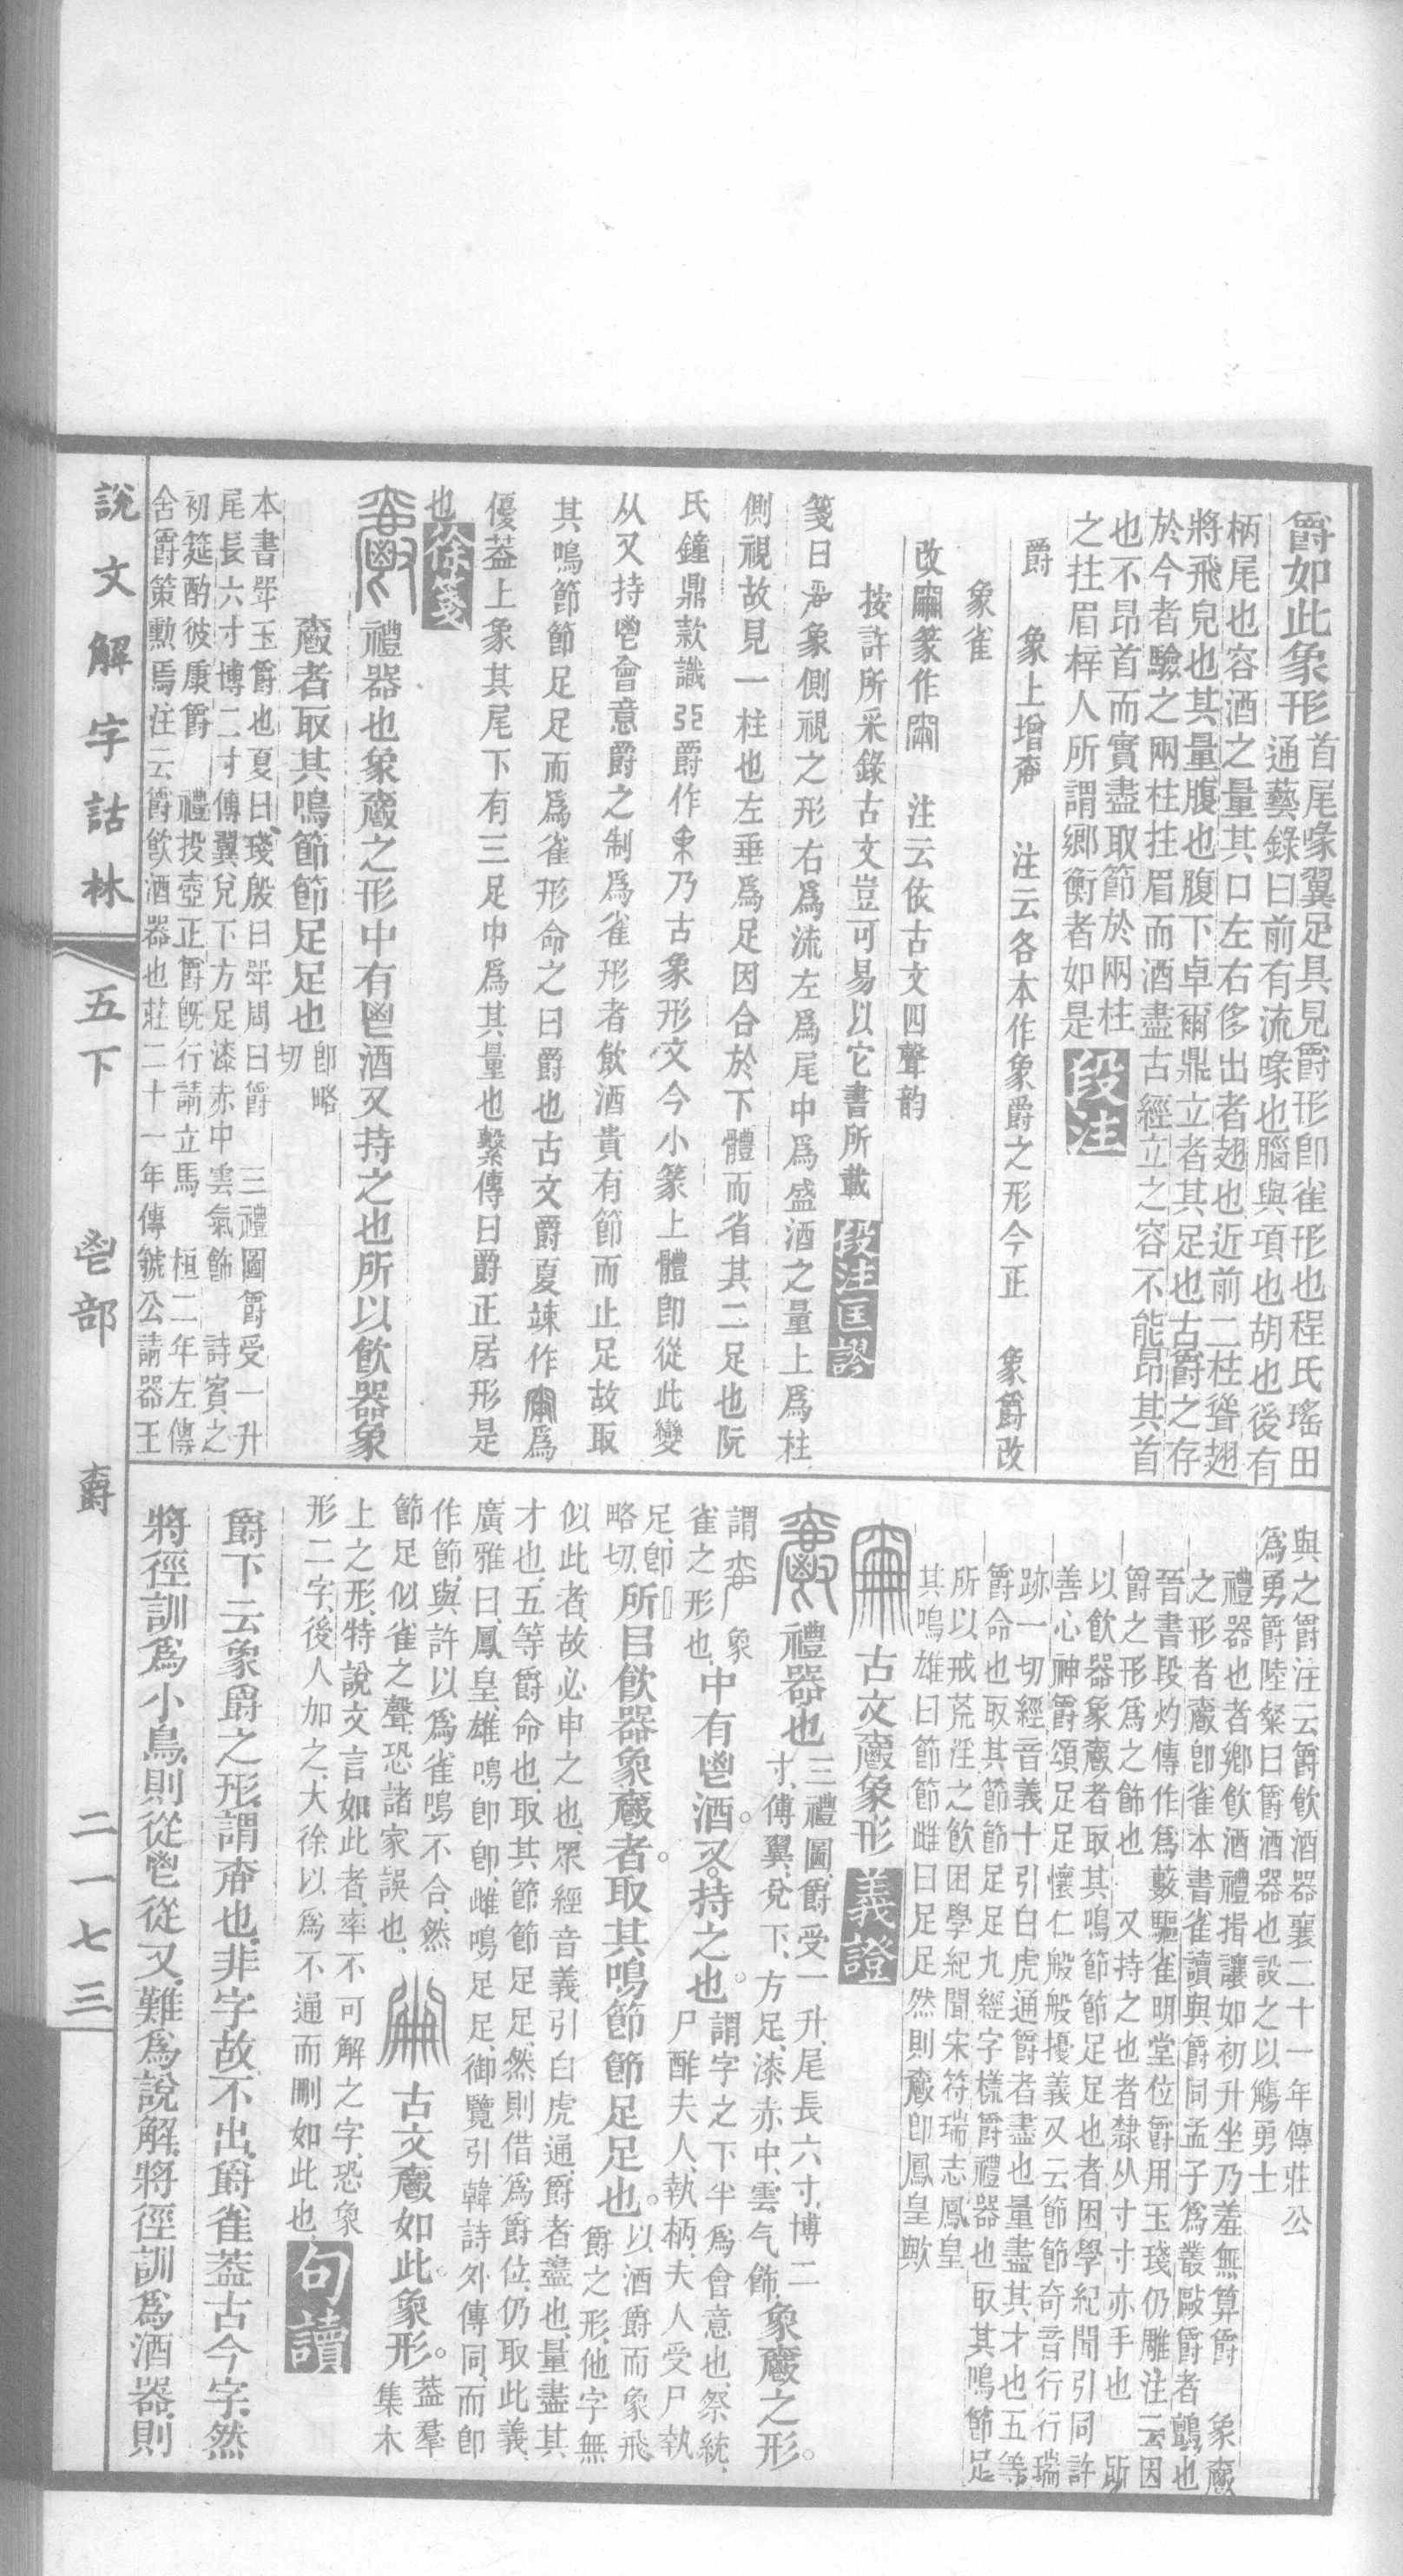 爵如此象形首尾喙翼足具見爵形卽雀形也程氏瑤田
通藝錄曰前有流喙也腦與項也胡也後有
柄尾也容酒之量其口左右侈出者翅也近前二柱聳翅
將飛皃也其量腹也腹下卓爾鼎立者其足也古爵之存
於今者驗之兩柱拄眉而酒盡古經立之容不能昂其首
也不昂首而實盡取節於兩柱
之拄眉梓人所謂鄉衡者如是段注
爵 象上增 注云各本作象爵之形今正 象爵改
象雀
改篆作 注云依古文四聲韵
按許所采錄古文豈可易以它書所載段注匡謬
箋曰象側視之形右爲流左爲尾中爲盛酒之量上爲柱
側視故見一柱也左垂爲足因合於下體而省其二足也阮
氏鐘鼎款識爵作乃古象形文今小篆上體卽從此變
从又持鬯會意爵之制爲雀形者飲酒貴有節而止足故取
其鳴節節足足而爲雀形命之曰爵也古文爵夏竦作爲
優葢上象其尾下有三足中爲其量也繫傳曰爵正居形是
也徐箋
禮器也象爵之形中有鬯酒又持之也所以飲器象
爵者取其鳴節節足足也卽略切
本書斝玉爵也夏曰琖殷曰斝周曰爵 三禮圖爵受一升
尾長六寸博二寸傅翼兌下方足漆赤中雲氣飾 詩賓之
初筵酌彼康爵 禮投壺正爵旣行請立馬 桓二年左傳
舍爵策勳焉注云爵飲酒器也莊二十一年傳虢公請器王
說文解字詁林 五下 鬯部 爵 二一七三
與之爵注云爵飲酒器襄二十一年傳莊公
爲勇爵陸粲曰爵酒器也設之以觴勇士
禮器也者鄉飲酒禮揖讓如初升坐乃羞無算爵 象爵
之形者爵卽雀本書雀讀與爵同孟子爲叢敺爵者鸇也
晉書段灼傳作爲藪驅雀明堂位爵用玉琖仍雕注云因
爵之形爲之飾也 又持之也者隸从寸寸亦手也 所
以飲器象爵者取其鳴節節足足也者困學紀聞引同許
善心神爵頌足足懷仁般般擾義又云節節奇音行行瑞
跡一切經音義十引白虎通爵者盡也量盡其才也五等
爵命也取其節節足足九經字㨾爵禮器也取其鳴節足
所以戒荒淫之飲困學紀聞宋符瑞志鳳皇
其鳴雄曰節節雌曰足足然則爵卽鳳皇歟
古文爵象形義證
禮器也三禮圖爵受一升尾長六寸博二
寸傅翼兌下方足漆赤中雲气飾象爵之形
謂象
雀之形也中有鬯酒又持之也謂字之下半爲會意也祭統
尸酢夫人執柄夫人受尸執
足卽
略切所㠯飲器象爵者取其鳴節節足足也以酒爵而象飛
爵之形他字無
似此者故必申之也眾經音義引白虎通爵者盡也量盡其
才也五等爵命也取其節節足足然則借爲爵位仍取此義
廣雅曰鳳皇雄鳴卽卽雌鳴足足御覽引韓詩外傳同而卽
作節與許以爲雀鳴不合然
節足似雀之聲恐諸家誤也 古文爵如此象形葢羣
集木
上之形特說文言如此者率不可解之字恐象
形二字後人加之大徐以爲不通而刪如此也句讀
爵下云象爵之形謂也非字故不出爵雀葢古今字然
將徑訓爲小鳥則從鬯從又難爲說解將徑訓爲酒器則